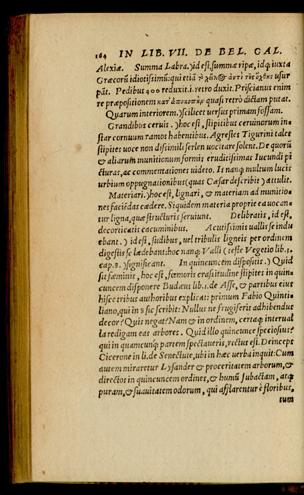 164 IN LIB. VII. DE BEL. GAL.
Alexiæ. Summa Labra.) id est, summæ ripæ, idq́; iuxta
Græcorũ idiotismũ: qui etiã
pãt. Pedibus 400 reduxit.i. retro duxit. Priscianus enim
re præpositionem quasi retrò dictam putat.
Quarum interiorem.) scilicet versus primam fossam.
Grandibus ceruis.) hoc est, stipitibus ceruinorum in
star cornuum ramos habentibus. Agrestes Tigurini tales
stipites uoce non dissimili serlen uocitare solent. De quorũ
& aliarum munitionum formis eruditissimas Iucundi pi
cturas, ac commentationes uideto. Is nanq; multum lucis
urbium oppugnationibus (quas Cæsar describit) attulit.
Materiari.) hoc est, lignari, & materiam ad munitio
nes faciẽdas cædere. Siquidem materia proprie ea uocan=
tur ligna, quæ structuris seruiunt. Delibratis, id est,
decorticatis cacuminibus. Acutissimis uallis se indu
ebant.) id est, sudibus, uel tribulis ligneis per ordinem
digestis se lædebant: hoc nanq; Valli (teste Vegetio lib.1.
cap.8.) significant. In quincuncem dispositis.) Quid
sit fæminis, hoc est, fœmoris crassitudine stipites in quin=
cuncem disponere Budæus lib.1. de Asse, & partibus eius
hisce tribus authoribus explicat: primum Fabio Quinti=
liano, qui in 8 sic scribit: Nullus ne frugiferis adhibendus
decor? Quis negat? Nam & in ordinem, certaq́; interual
la redigam eas arbores. Quid illo quincunce speciosius?
qui in quamcunq; partem spectaueris, rectus est. Deinceps
Cicerone in li. de Senectute, ubi in hæc uerba inquit: Cum
autem miraretur Lysander & proceritatem arborum, &
directos in quincuncem ordines, & humũ subactam, atq;
puram, & suauitatem odorum, qui afflarentur è floribus,
tum